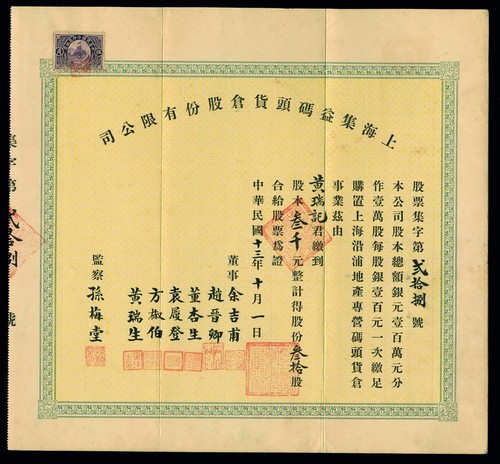 上海集益碼頭貨倉股份有限公司
股票集字第貳拾捌號
本公司股本總額銀元壹百萬元分
作壹萬股每股銀壹百元一次繳足
購置上海沿浦地產專營碼頭貨倉
事業茲由
黃瑞記君繳到
股本叁千元整計得股份叁拾股
合給股票爲證
中華民國十三年十月一日
董事
余吉甫
趙晉卿
董杏生
袁履登
方椒伯
黃瑞生
監察
孫梅堂
集字第貳拾捌號